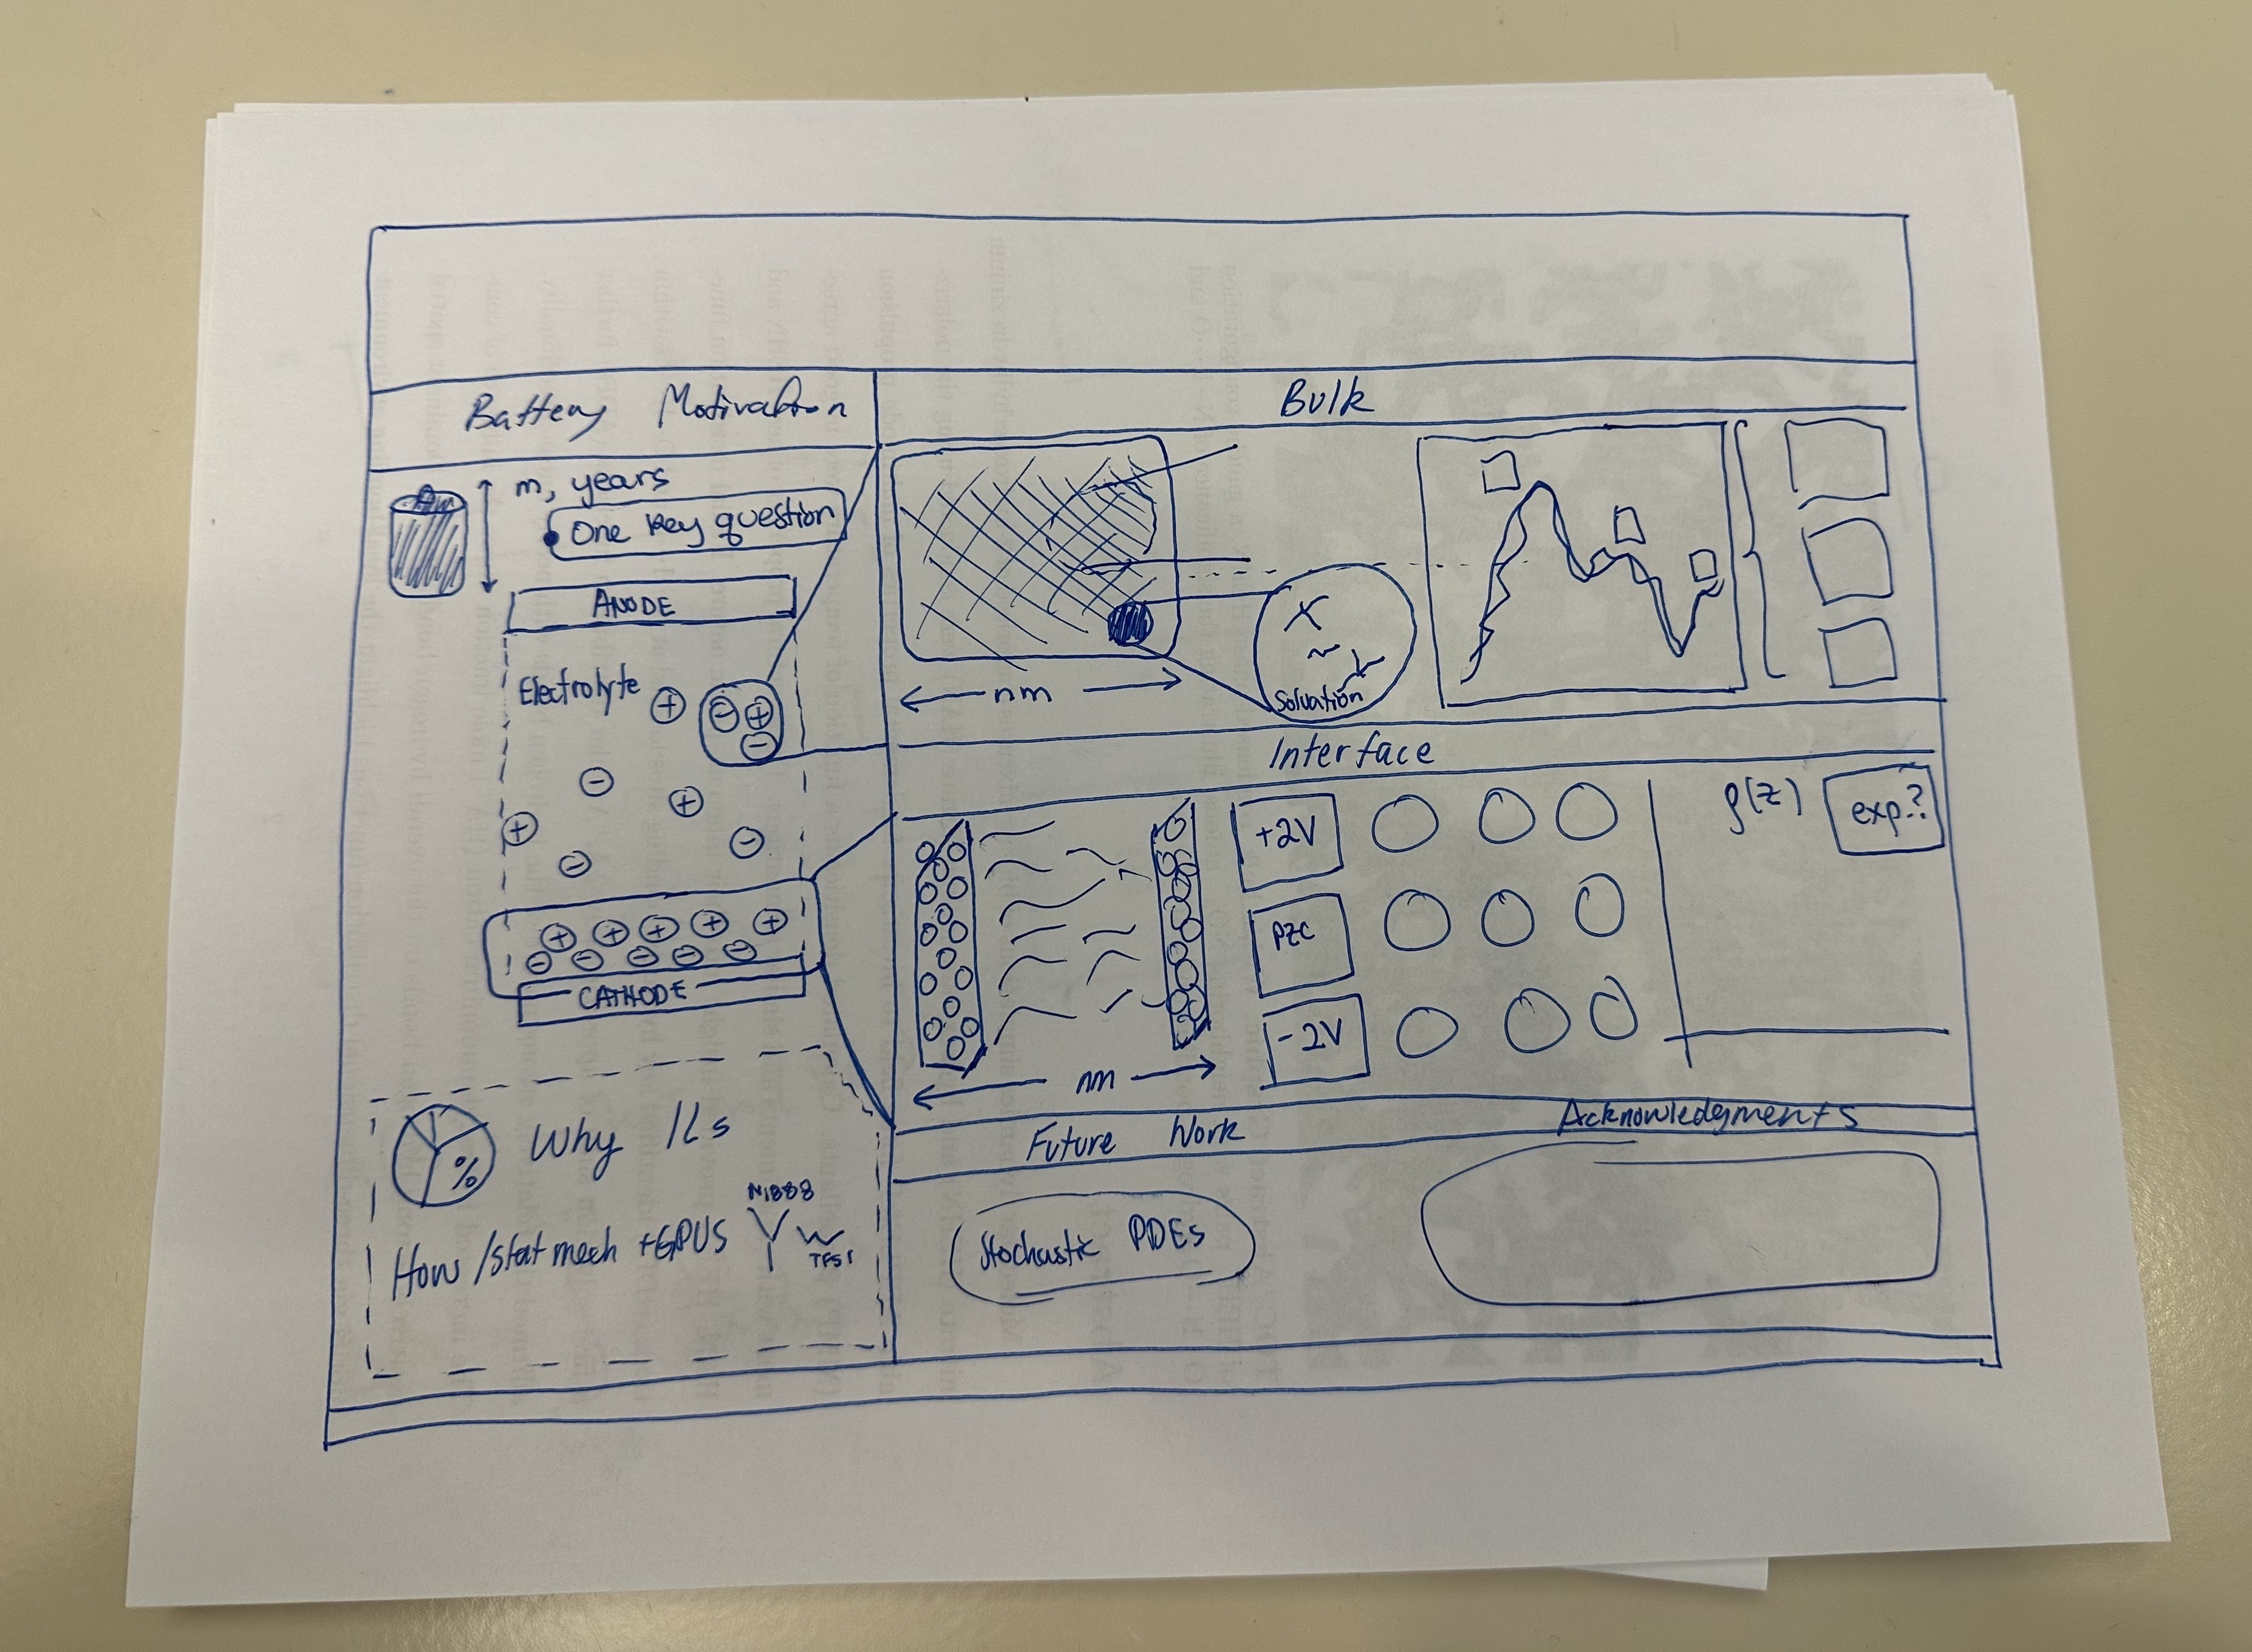 Battery Motivation
m, years
One key question
ANODE
Electrolyte
+
- +
-
-
+
+
-
-
+ + + + +
- - - - -
CATHODE
% Why ILs
N1888
How /stat mech +GPUS
TFSI
Bulk
nm
Solvation
Interface
+2V
PZC
-2V
nm
ρ(z)
exp.?
Future Work
Acknowledgments
Stochastic PDEs